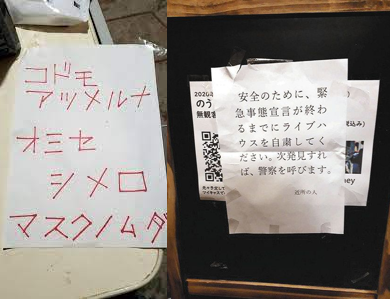 コドモ
アツメルナ
オミセ
シメロ
マスクノムダ
安全のために、緊
急事態宣言が終わ
るまでにライブハ
ウスを自粛してく
ださい。次発見すれ
ば、警察を呼びます。
近所の人
2020年
のう
無観客
込み)
ney